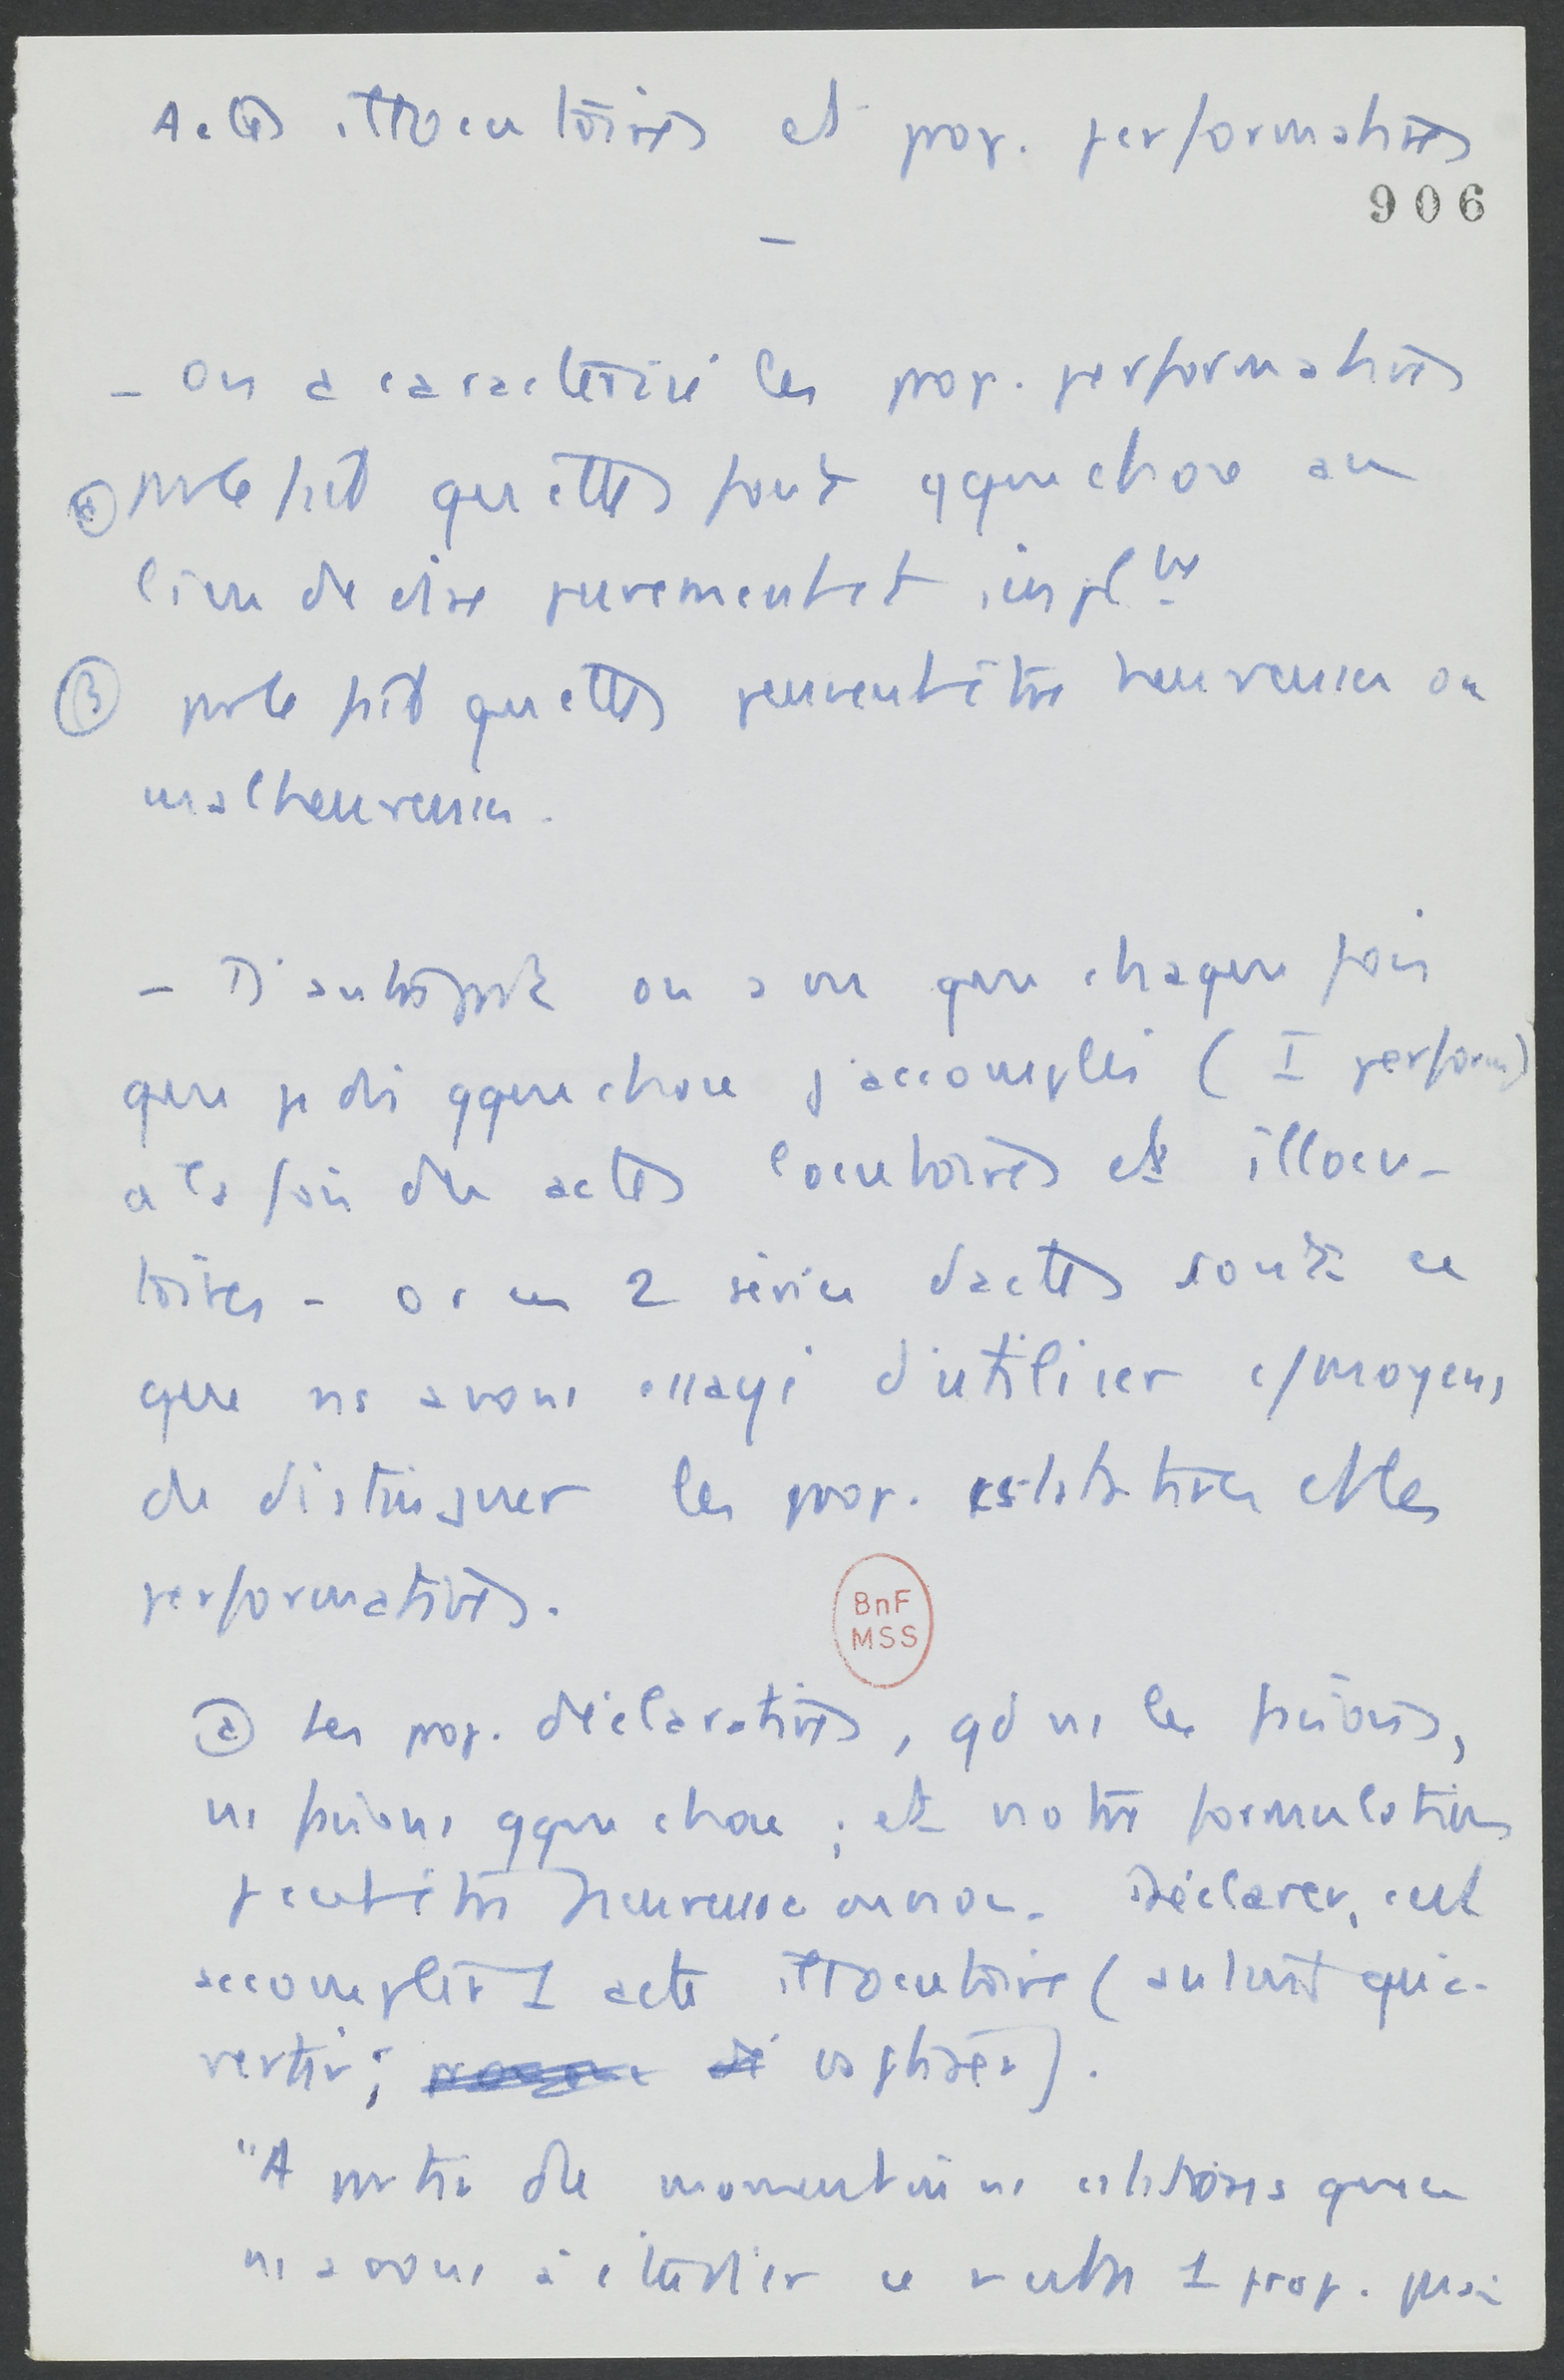 Actes illocutoires et prop. performatives
906
–
– On a caractérisé les prop. performatives
ⓐ par le fait qu'elles font qque chose au
lieu de dire purement et simplt
ⓑ par le fait qu'elles peuvent être heureuses ou
malheureuses.
– D'autre part on a vu que chaque fois
que je dis qque chose j'accomplis (I perform)
à la fois des actes locutoires et illocu-
toires – or ces 2 séries d'actes sont ce
que ns avons essayé d'utiliser c/moyens
de distinguer les prop. et les
performatives.
ⓐ Les prop. déclaratives, qd ns les faisons,
ns faisons qque chose ; et notre formulation
peut être heureuse ou non. Déclarer, c'est
accomplir 1 acte illocutoire (autant qu'a-
vertir ; baptiser).
"A partir du moment où ns que ce
ns avons à étudier ce n'est 1 prop. mais